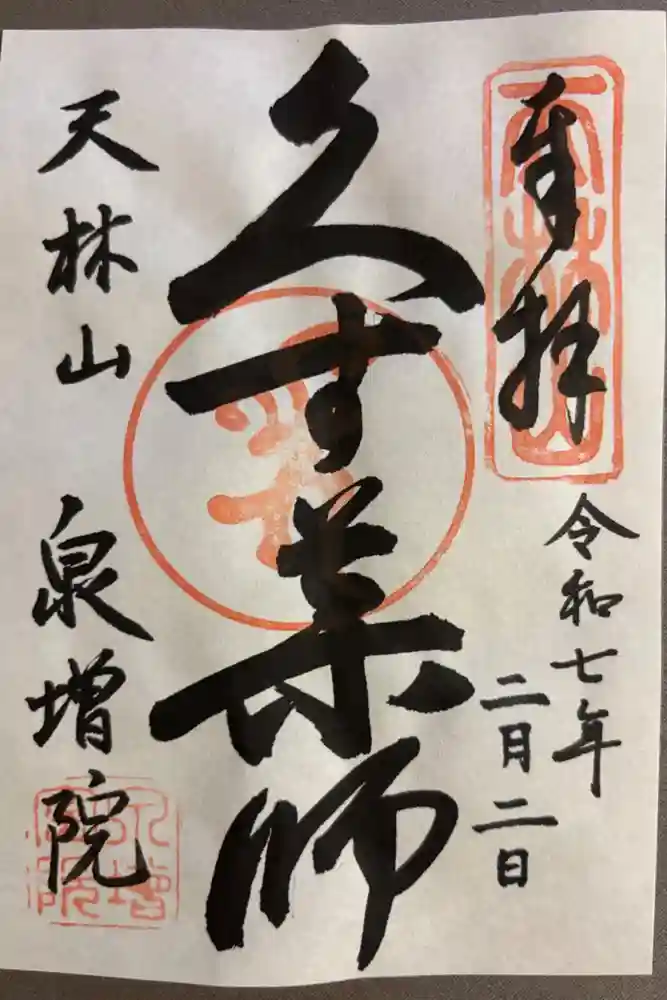 奉拝
令和七年
二月二日
久寸薬師
天林山
泉増院
天林山